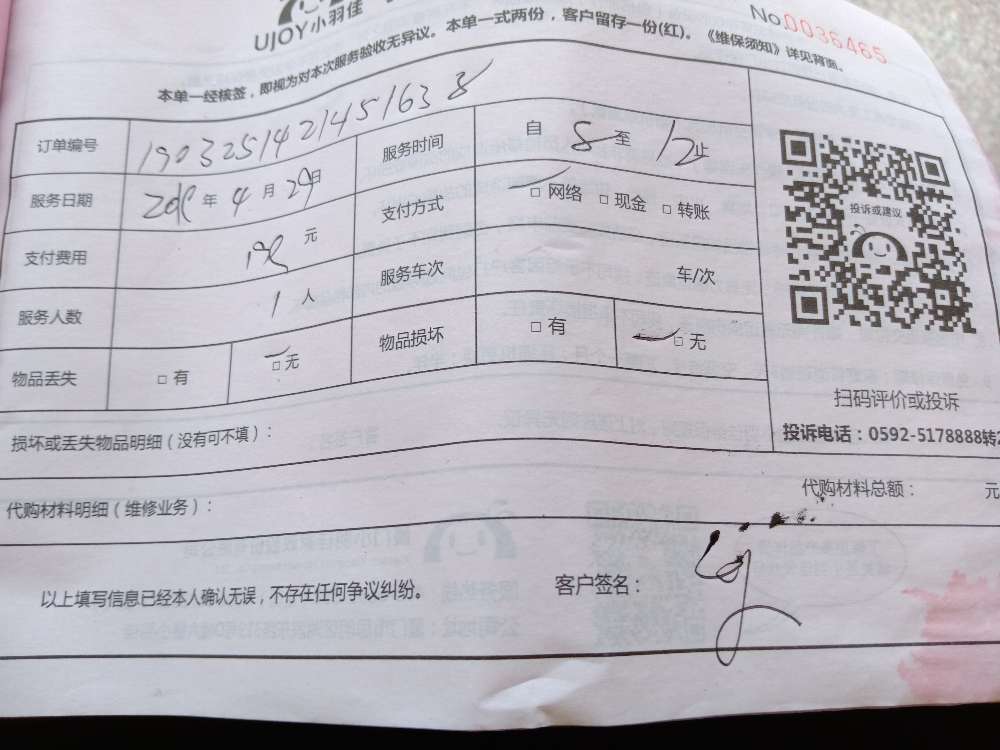 UJOY小羽佳
No.0036465
本单一经核签，即视为对本次服务验收无异议。本单一式两份，客户留存一份(红)。《维保须知》详见背面。
订单编号 1903251421451638 服务时间 自 8 至 12 止
服务日期 年 4 月 29 日 支付方式 □ 网络 □ 现金 □ 转账
支付费用 元 服务车次 车/次
服务人数 1 人 物品损坏 □ 有 □ 无
物品丢失 □ 有 □ 无
投诉或建议
扫码评价或投诉
投诉电话：0592-5178888转2
损坏或丢失物品明细（没有可不填）：
代购材料明细（维修业务）： 代购材料总额： 元
以上填写信息已经本人确认无误，不存在任何争议纠纷。 客户签名：